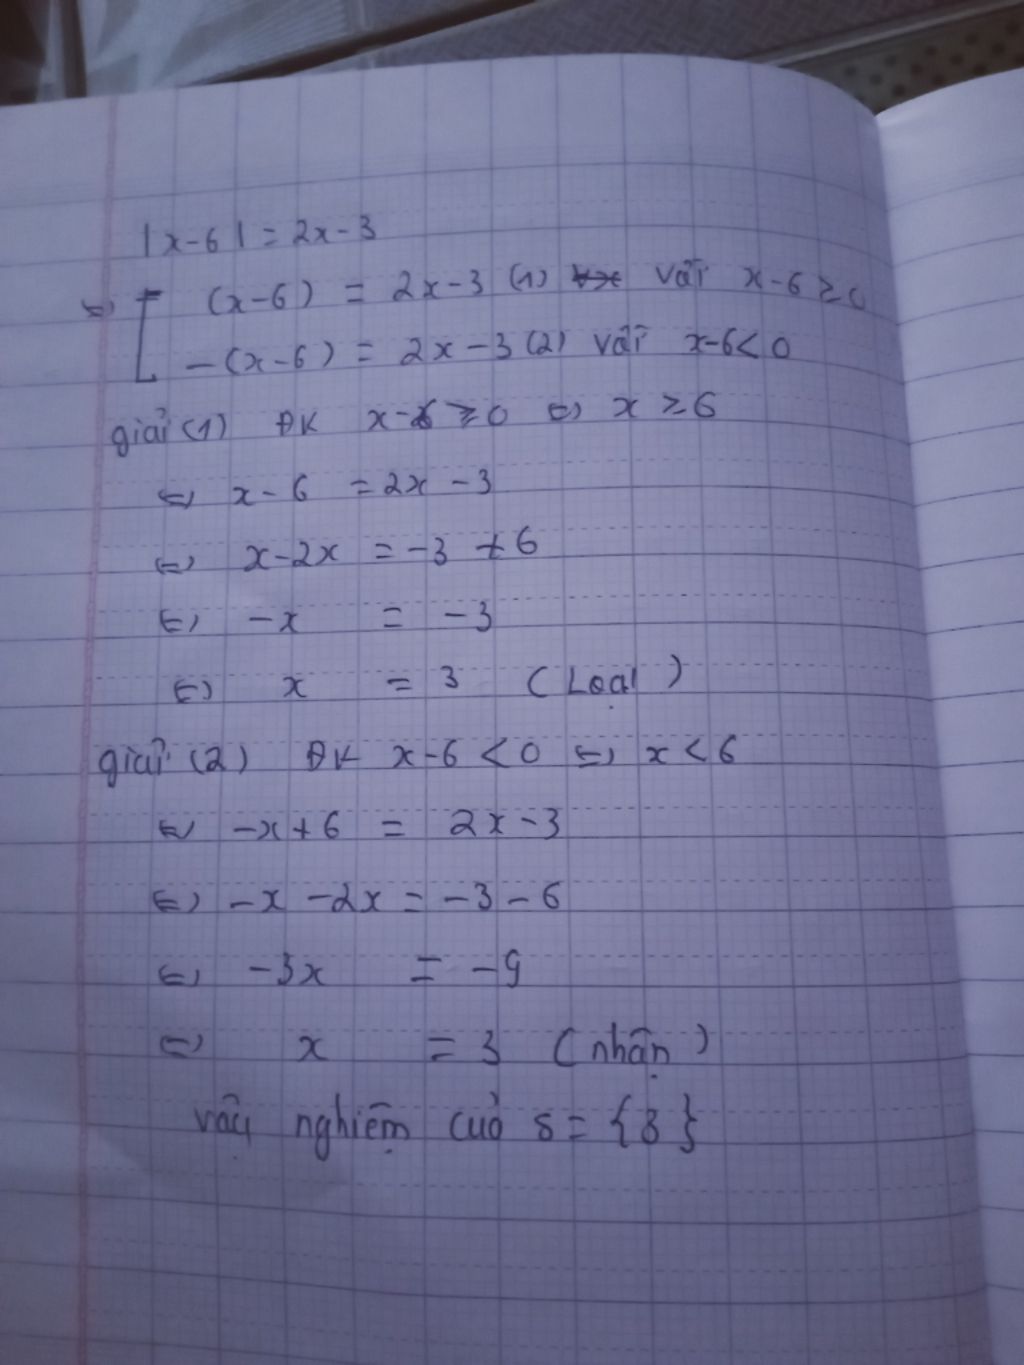 |x-6| = 2x-3
⇔ [ (x-6) = 2x-3 (1) với x-6 ≥ 0
-(x-6) = 2x-3 (2) với x-6 < 0
giải (1) ĐK x-6 ≥ 0 ⇔ x ≥ 6
⇔ x-6 = 2x-3
⇔ x-2x = -3+6
⇔ -x = -3
⇔ x = 3 (Loại)
giải (2) ĐK x-6 < 0 ⇔ x < 6
⇔ -x+6 = 2x-3
⇔ -x-2x = -3-6
⇔ -3x = -9
⇔ x = 3 (nhận)
vậy nghiệm củả S = {3}